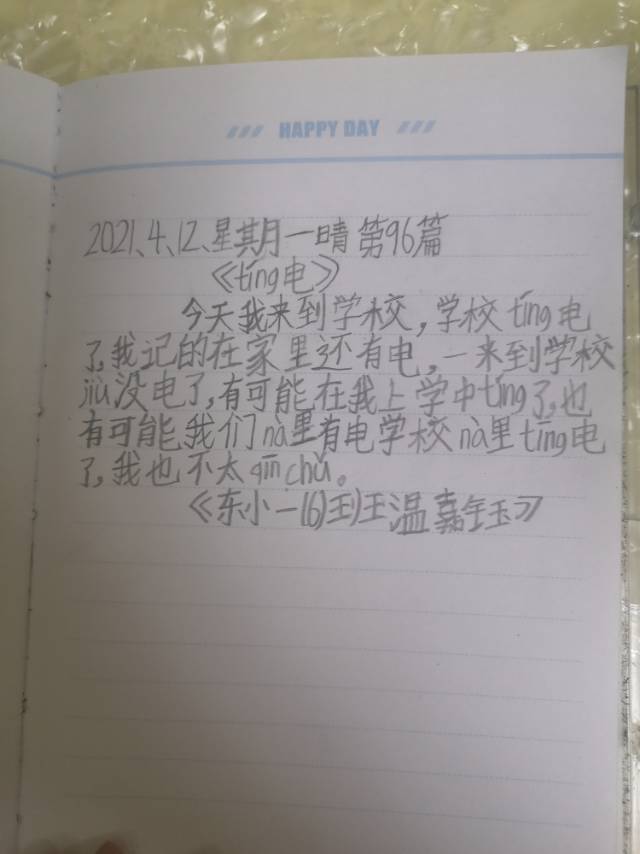 HAPPY DAY
2021、4、12、星其月一晴 第96篇
《tíng电》
今天我来到学校，学校tíng电
了，我记的在家里还有电，一来到学校
jiù没电了，有可能在我上学中tíng了，也
有可能，我们nà里有电学校nà里tíng电
了，我也不太qīn chǔ。
《东小一(6)王温嘉钰》